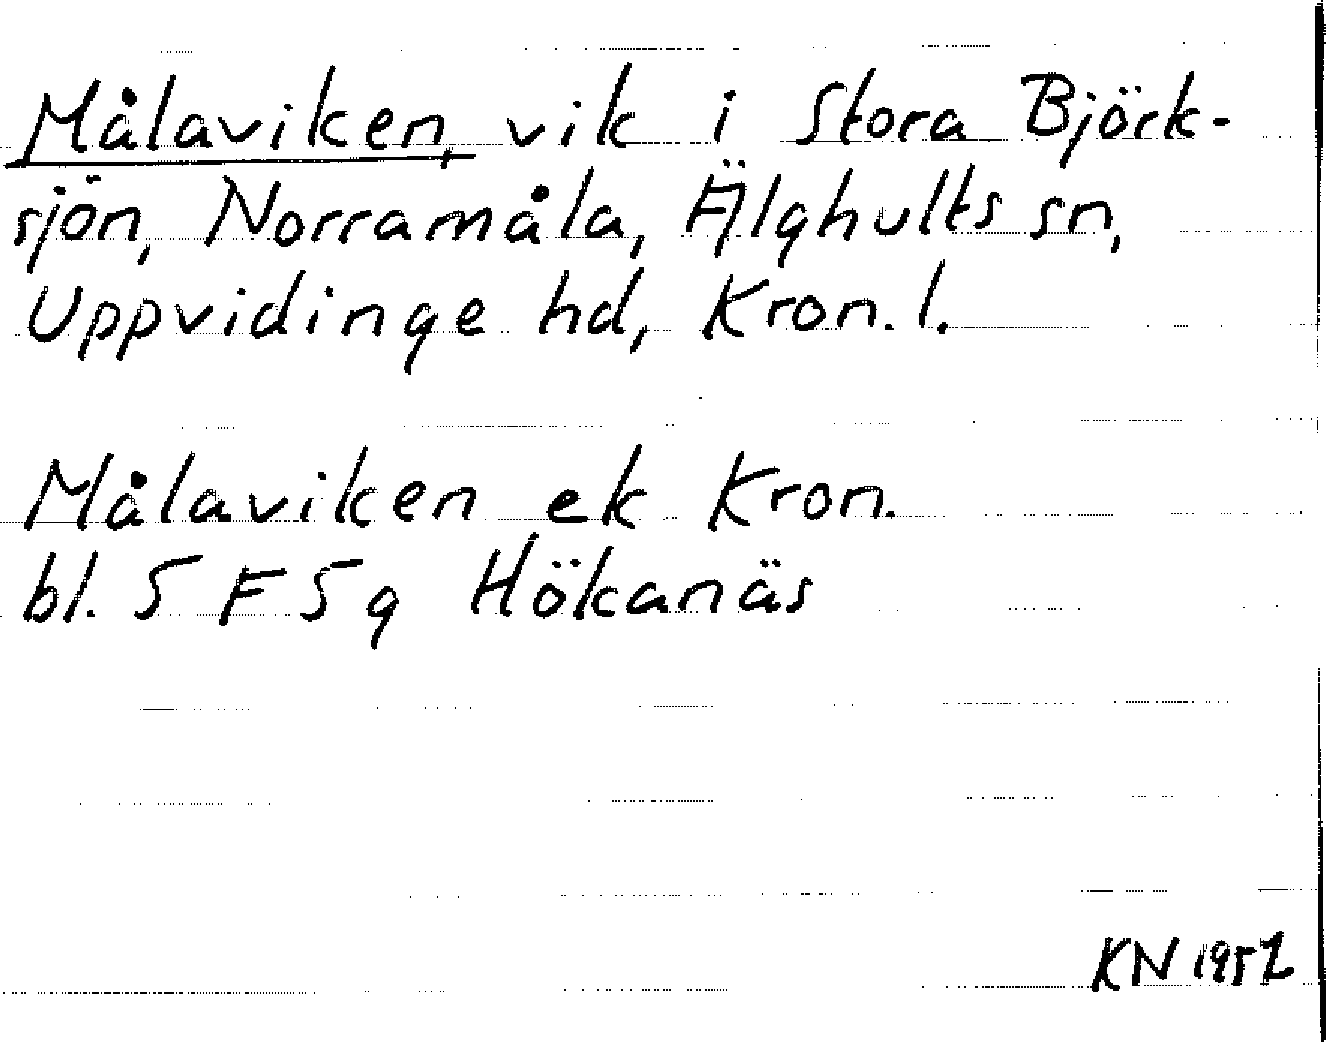 Målaviken, vik i Stora Björk-
sjön, Norramåla, Älghults sn,
Uppvidinge hd, Kron. l.
Målaviken ek Kron.
bl. 5 F 5 g Hökanäs
KN 1957